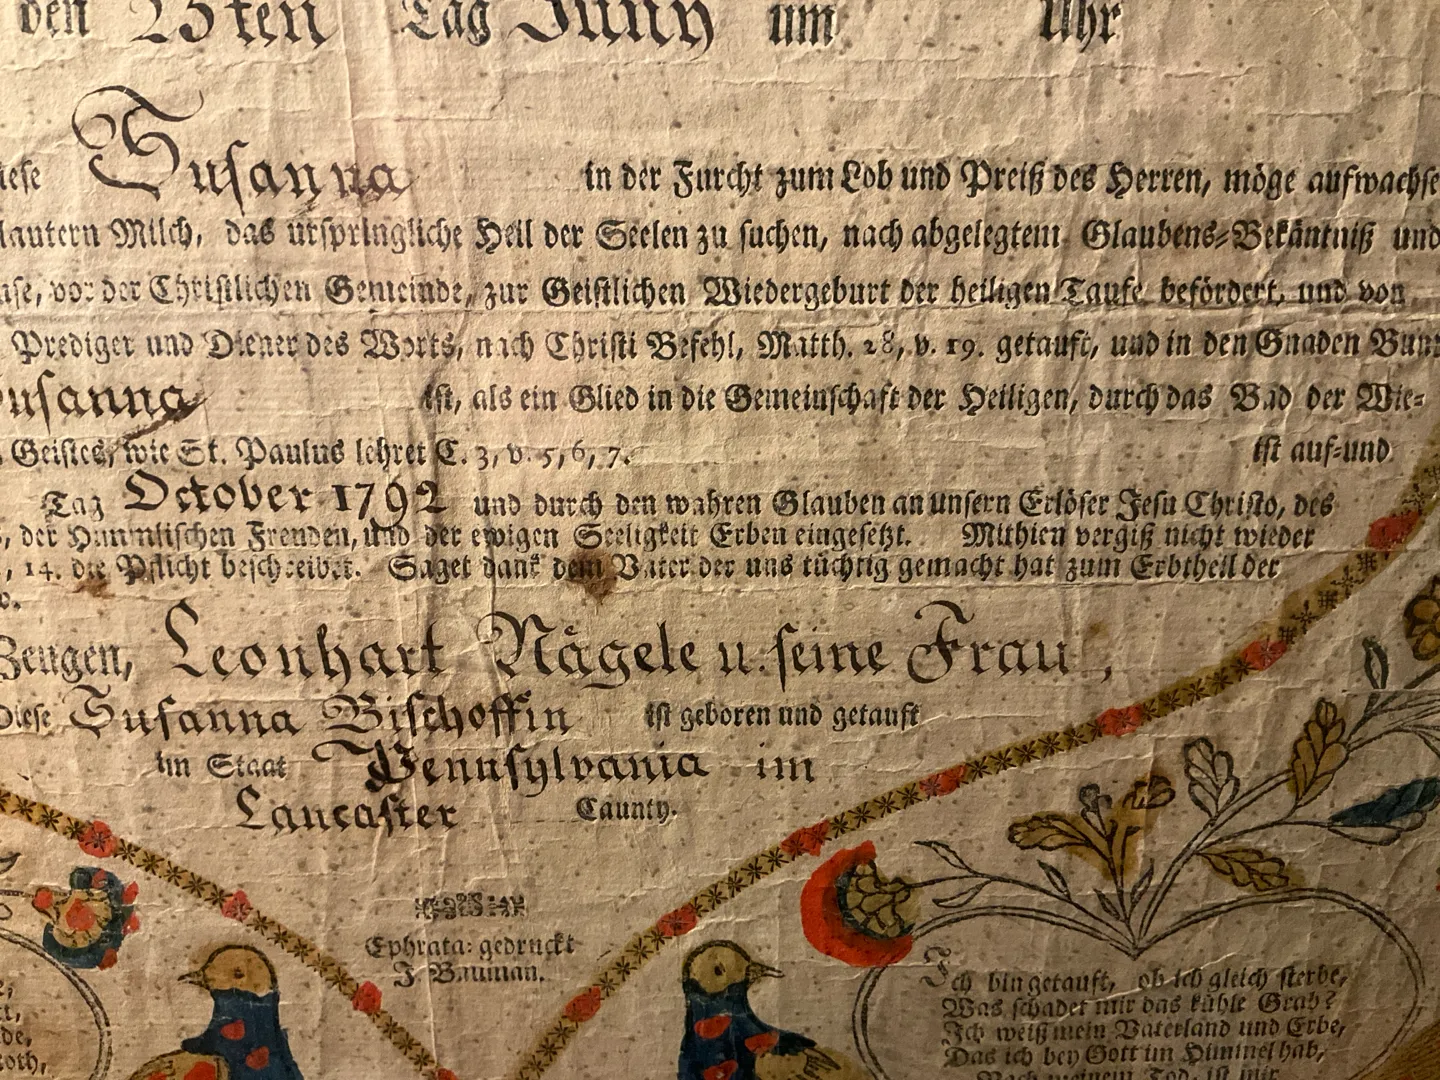 den 25ten Tag Juny um Uhr
Susanna in der Furcht zum Lob und Preiß des Herren, möge aufwachse
lautern Milch, das urspringliche Heil der Seelen zu suchen, nach abgelegtem Glaubens-Bekäntniß und
vor der Christlichen Gemeinde, zur Geistlichen Wiedergeburt der heiligen Taufe befördert, und von
Prediger und Diener des Worts, nach Christi Befehl, Matth. 28, v. 19. getauft, und in den Gnaden Bun
Susanna ist, als ein Glied in die Gemeinschaft der Heiligen, durch das Bad der Wie-
Geistes, wie St. Paulus lehret C. 3, v. 5, 6, 7. ist auf-und
Tag October 1792 und durch den wahren Glauben an unsern Erlöser Jesu Christo, des
der Himmlischen Freuden, und der ewigen Seeligkeit Erben eingesetzt. Mithien vergiß nicht wieder
14. die Pflicht beschreibet. Saget dank dem Vater der uns tüchtig gemacht hat zum Erbtheil der
Zeugen, Leonhart Nägele u. seine Frau,
Diese Susanna Bischoffin ist geboren und getauft
im Staat Pennsylvania im
Lancaster Caunty.
Ephrata: gedruckt
J. Bauman.
Ich bin getauft, ob ich gleich sterbe,
Was schadet mir das kühle Grab?
Ich weiß mein Vaterland und Erbe,
Das ich bey Gott im Himmel hab,
Nach meinem Tod, ist mir